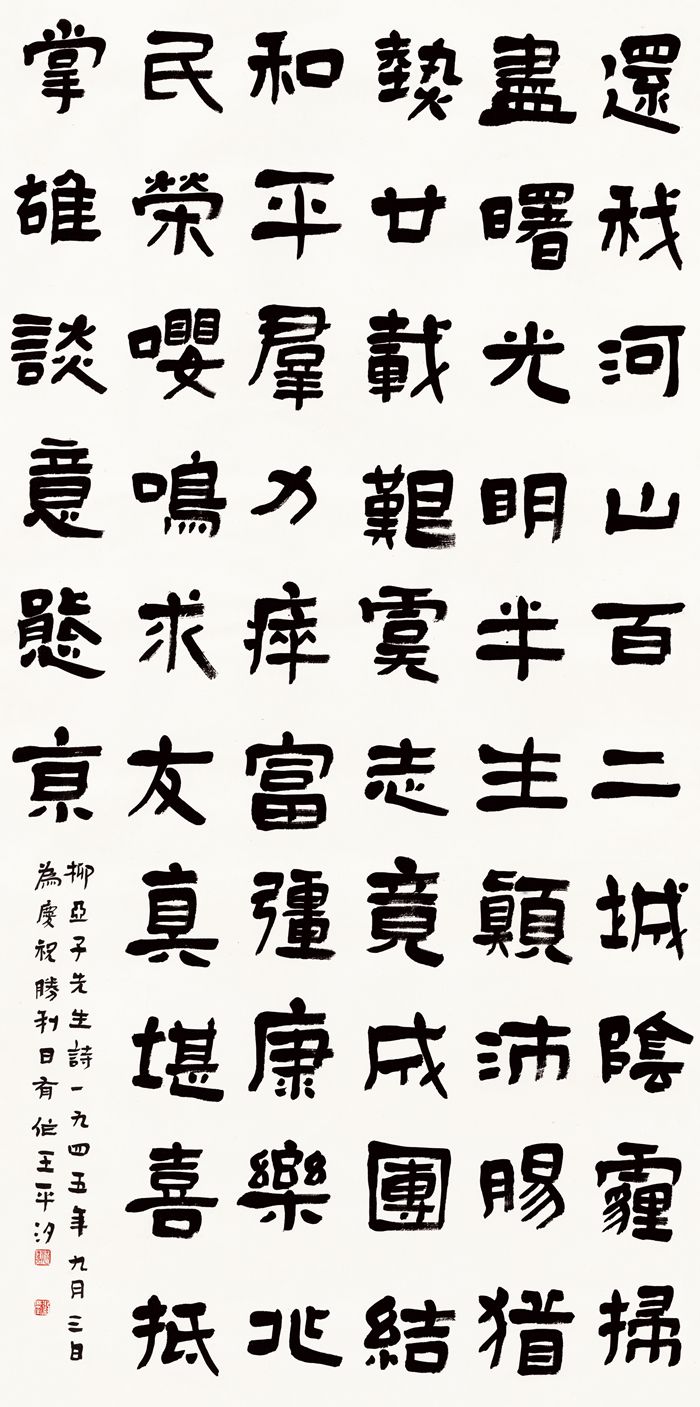 還我河山百二城陰霾掃
盡曙光明半生顛沛腸猶
熱廿載艱虞志竟成團結
和平羣力瘁富彊康樂兆
民榮嚶鳴求友真堪喜抵
掌雄談意態亰
柳亞子先生詩一九四五年九月三日
為慶祝勝利日有作王平汐